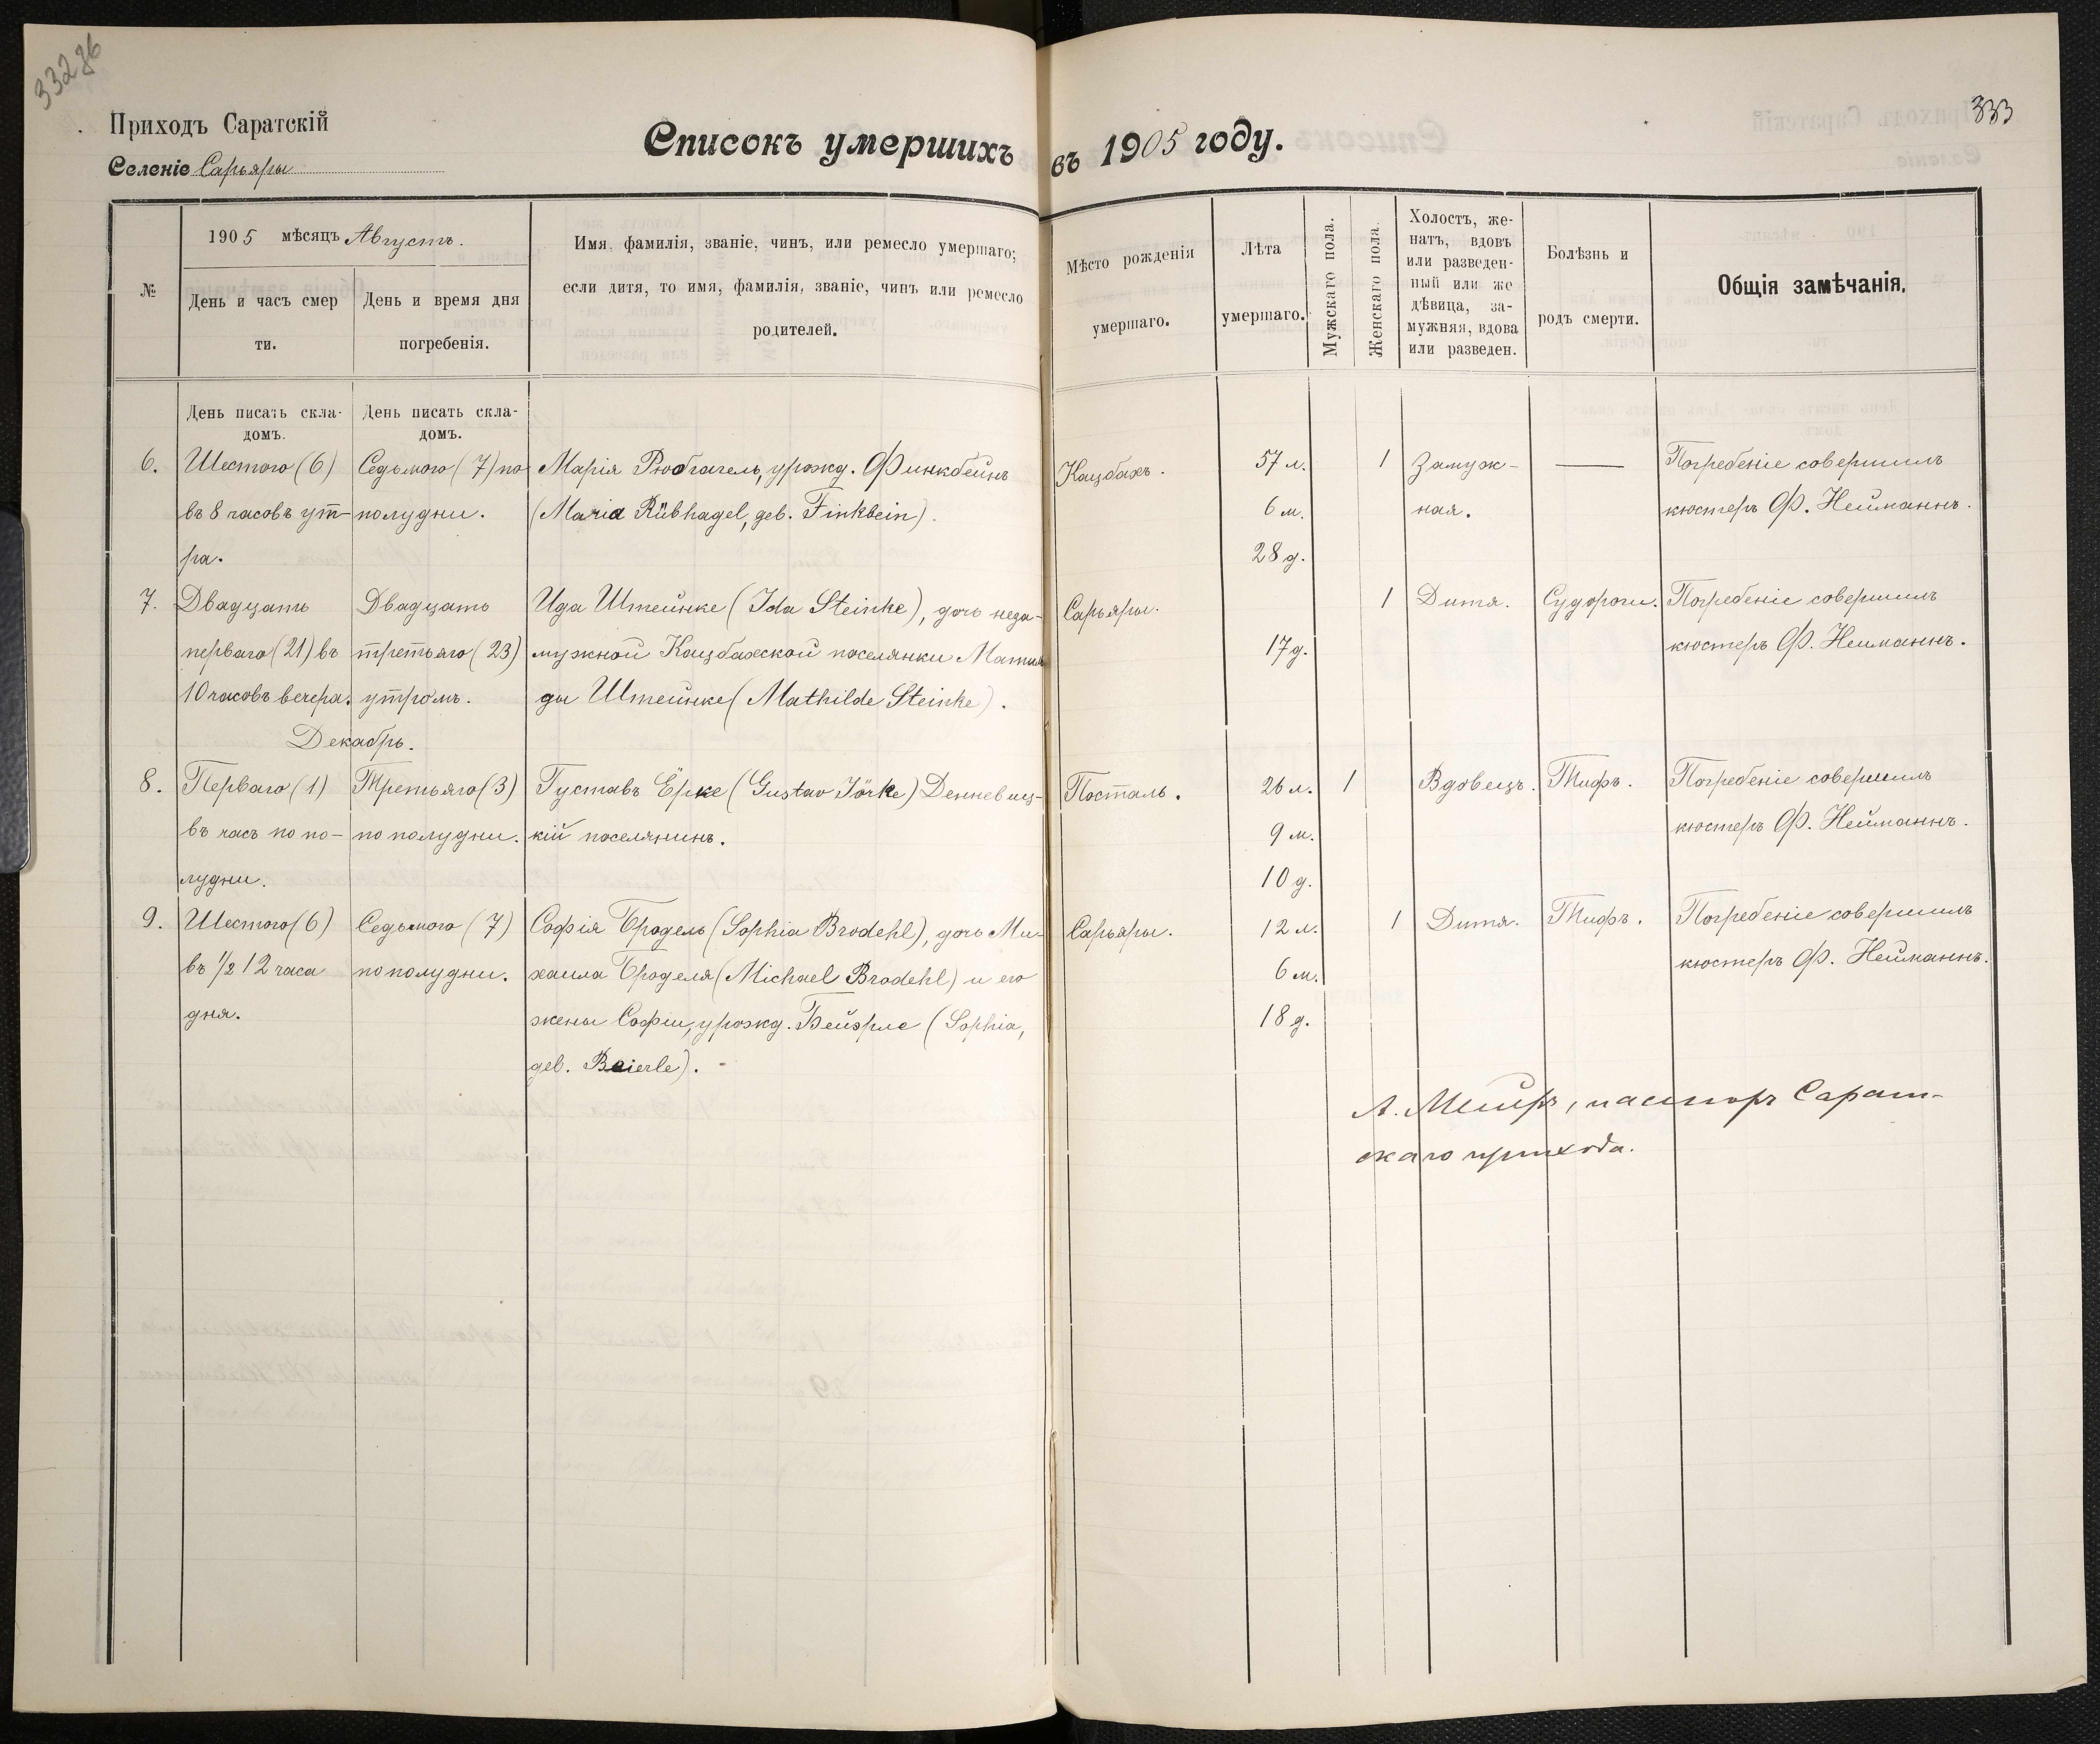 332об
333
Приходъ Саратскій
Селеніе Сарьяры
Списокъ умершихъ въ 1905 году.
№
1905 мѣсяцъ Августъ.
День и часъ смер
ти.
День и время дня
погребенія.
Имя, фамилія, званіе, чинъ, или ремесло умершаго;
если дитя, то имя, фамилія, званіе, чинъ или ремесло
родителей.
Мѣсто рожденія
умершаго.
Лѣта
умершаго.
Мужскаго пола.
Женскаго пола.
Холостъ, же-
натъ, вдовъ
или разведен-
ный или же
дѣвица, за-
мужняя, вдова
или разведен.
Болѣзнь и
родъ смерти.
Общія замѣчанія,
День писать скла-
домъ.
День писать скла-
домъ.
6. Шестого (6) Седьмого (7) по Марія Рюбгагель, урожд. Финкбейнъ Кацбахъ. 57 л. 1 Замуж- — Погребеніе совершилъ
въ 8 часовъ ут- полудни. (Maria Rübhagel, geb. Finkbein). 6 м. ная. кюстеръ Ф. Нейманнъ.
ра. 28 д.
7. Двадцать Двадцать Ида Штейнке (Ida Steinke), дочь неза- Сарьяры. 1 Дитя. Судороги. Погребеніе совершилъ
перваго (21) въ третьяго (23) мужной Кацбахской поселянки Матиль 17 д. кюстеръ Ф. Нейманнъ.
10 часовъ вечера. утромъ. ды Штейнке (Mathilde Steinke).
Декабрь.
8. Перваго (1) Третьяго (3) Густавъ Ёрке (Gustav Jörke) Денневиц- Посталь. 26 л. 1 Вдовецъ. Тифъ. Погребеніе совершилъ
въ часъ по по- по полудни. кій поселянинъ. 9 м. кюстеръ Ф. Нейманнъ.
лудни. 10 д.
9. Шестого (6) Седьмого (7) Софія Бродель (Sophia Brodehl), дочь Ми- Сарьяры. 12 л. 1 Дитя. Тифъ. Погребеніе совершилъ
въ ½ 12 часа по полудни. хаила Броделя (Michael Brodehl) и его 6 м. кюстеръ Ф. Нейманнъ.
дня. жены Софіи, урожд. Бейэрле (Sophia, 18 д.
geb. Beierle).
А. Мейеръ, пасторъ Сарат-
скаго прихода.